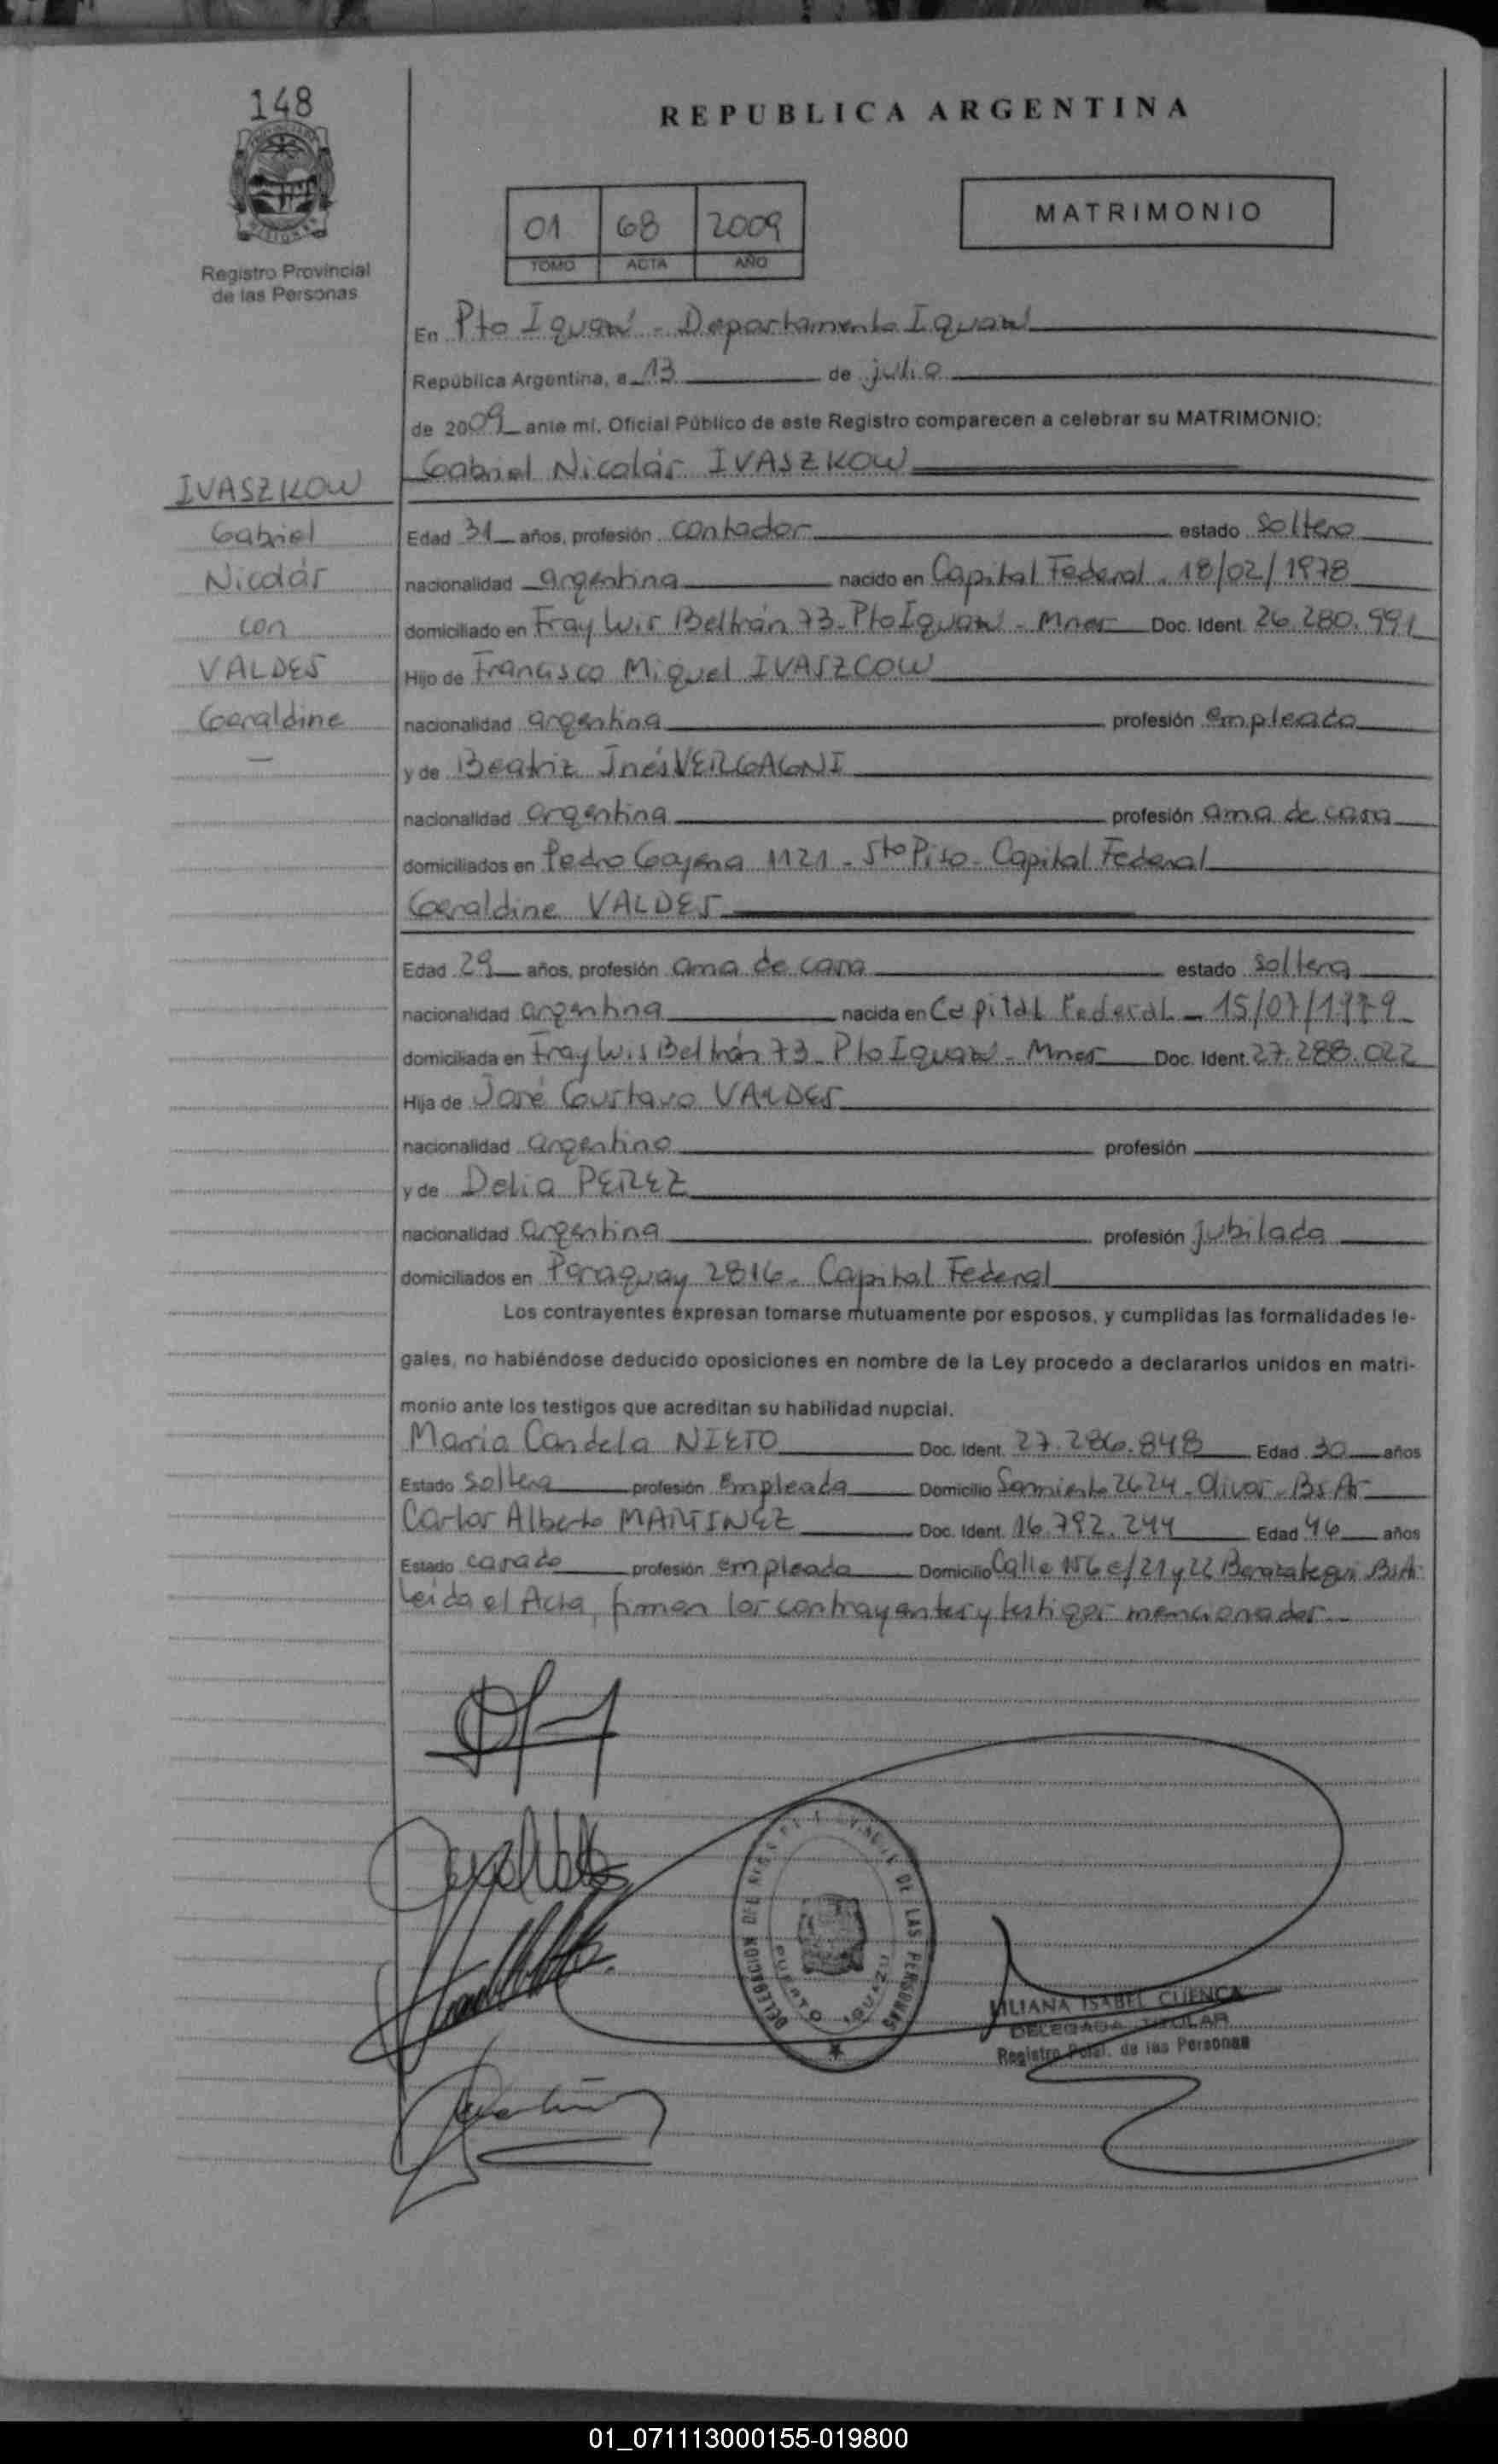 148
REPUBLICA ARGENTINA
MATRIMONIO
01 68 2009
TOMO ACTA AÑO
Registro Provincial
de las Personas
En Pto Iguazú - Departamento Iguazú
República Argentina, a 13 de julio
de 2009 ante mí, Oficial Público de este Registro comparecen a celebrar su MATRIMONIO:
Gabriel Nicolás IVASZKOW
IVASZKOW
Gabriel
Nicolás
con
VALDES
Geraldine
Edad 31 años, profesión contador estado soltero
nacionalidad argentina nacido en Capital Federal - 18/02/1978
domiciliado en Fray Luis Beltrán 73 - Pto Iguazú - Mnes Doc. Ident. 26.280.991
Hijo de Francisco Miguel IVASZCOW
nacionalidad argentina profesión empleado
y de Beatriz Inés VERGAGNI
nacionalidad argentina profesión ama de casa
domiciliados en Pedro Goyena 1121 - 5to Piso - Capital Federal
Geraldine VALDES
Edad 29 años, profesión ama de casa estado soltera
nacionalidad argentina nacida en Capital Federal - 15/07/1979
domiciliada en Fray Luis Beltrán 73 - Pto Iguazú - Mnes Doc. Ident. 27.288.022
Hija de José Gustavo VALDES
nacionalidad argentino profesión
y de Delia PEREZ
nacionalidad argentina profesión jubilada
domiciliados en Paraguay 2816 - Capital Federal
Los contrayentes expresan tomarse mutuamente por esposos, y cumplidas las formalidades le-
gales, no habiéndose deducido oposiciones en nombre de la Ley procedo a declararlos unidos en matri-
monio ante los testigos que acreditan su habilidad nupcial.
María Candela NIETO Doc. Ident. 27.286.848 Edad 30 años
Estado soltera profesión empleada Domicilio Sarmiento 2624 - Olivos - Bs As
Carlos Alberto MARTINEZ Doc. Ident. 16.792.244 Edad 46 años
Estado casado profesión empleado Domicilio Calle 156 e/21 y 22 Berazategui Bs As
Leída el Acta, firman los contrayentes y testigos mencionados
DELEGACION DEL REGISTRO PROVINCIAL DE LAS PERSONAS
PUERTO IGUAZU
LILIANA ISABEL CUENCA
DELEGADA TITULAR
Registro Pcial. de las Personas
01_071113000155-019800